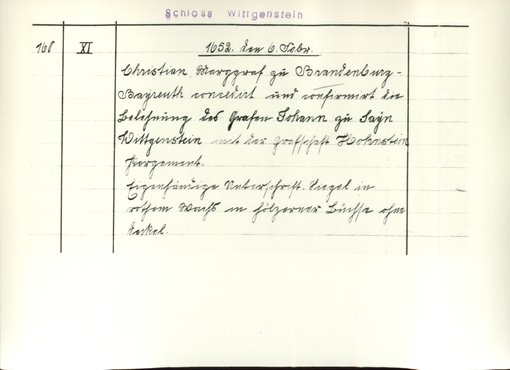 Schloss Wittgenstein
168 XI 1652. den 6. Febr.
Christian, Marggraf zu Brandenburg-
Bayreuth concedirt und confirmirt die
Belehnung des Grafen Johann zu Sayn
Wittgenstein mit der Grafschaft Hohnstein
Pergament.
Eigenhändige Unterschrift. Siegel in
rothem Wachs in hölzerner Büchse ohne
Deckel.